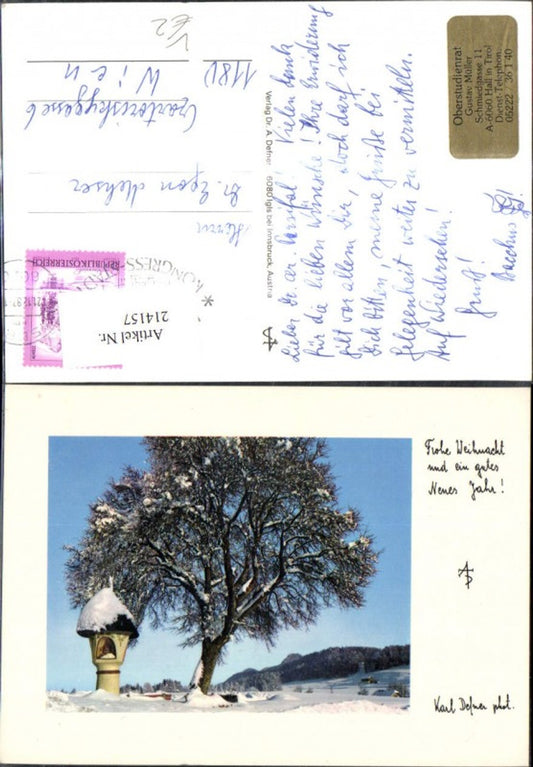 Oberstudienrat
Gustav Müller
Schmiedgasse 11
A-6060 Hall in Tirol
Dienst-Telephon:
05222 / 36 1 40
Vielen Dank
für die lieben Wünsche! Ihre
gilt vor allem Dir, doch darf ich
Dich bitten, meine Grüße bei
Gelegenheit weiter zu vermitteln.
Auf Wiedersehen!
Gruß!
Bacchus
Verlag Dr. A. Defner 6080 Igls bei Innsbruck, Austria
Herrn
Dr. Egon
Czartoryskygasse 6
1180 Wien
V
€2
REPUBLIK ÖSTERREICH
KONGRESS-
Artikel Nr.
214157
Frohe Weihnacht
und ein gutes
Neues Jahr!
Karl Defner phot.